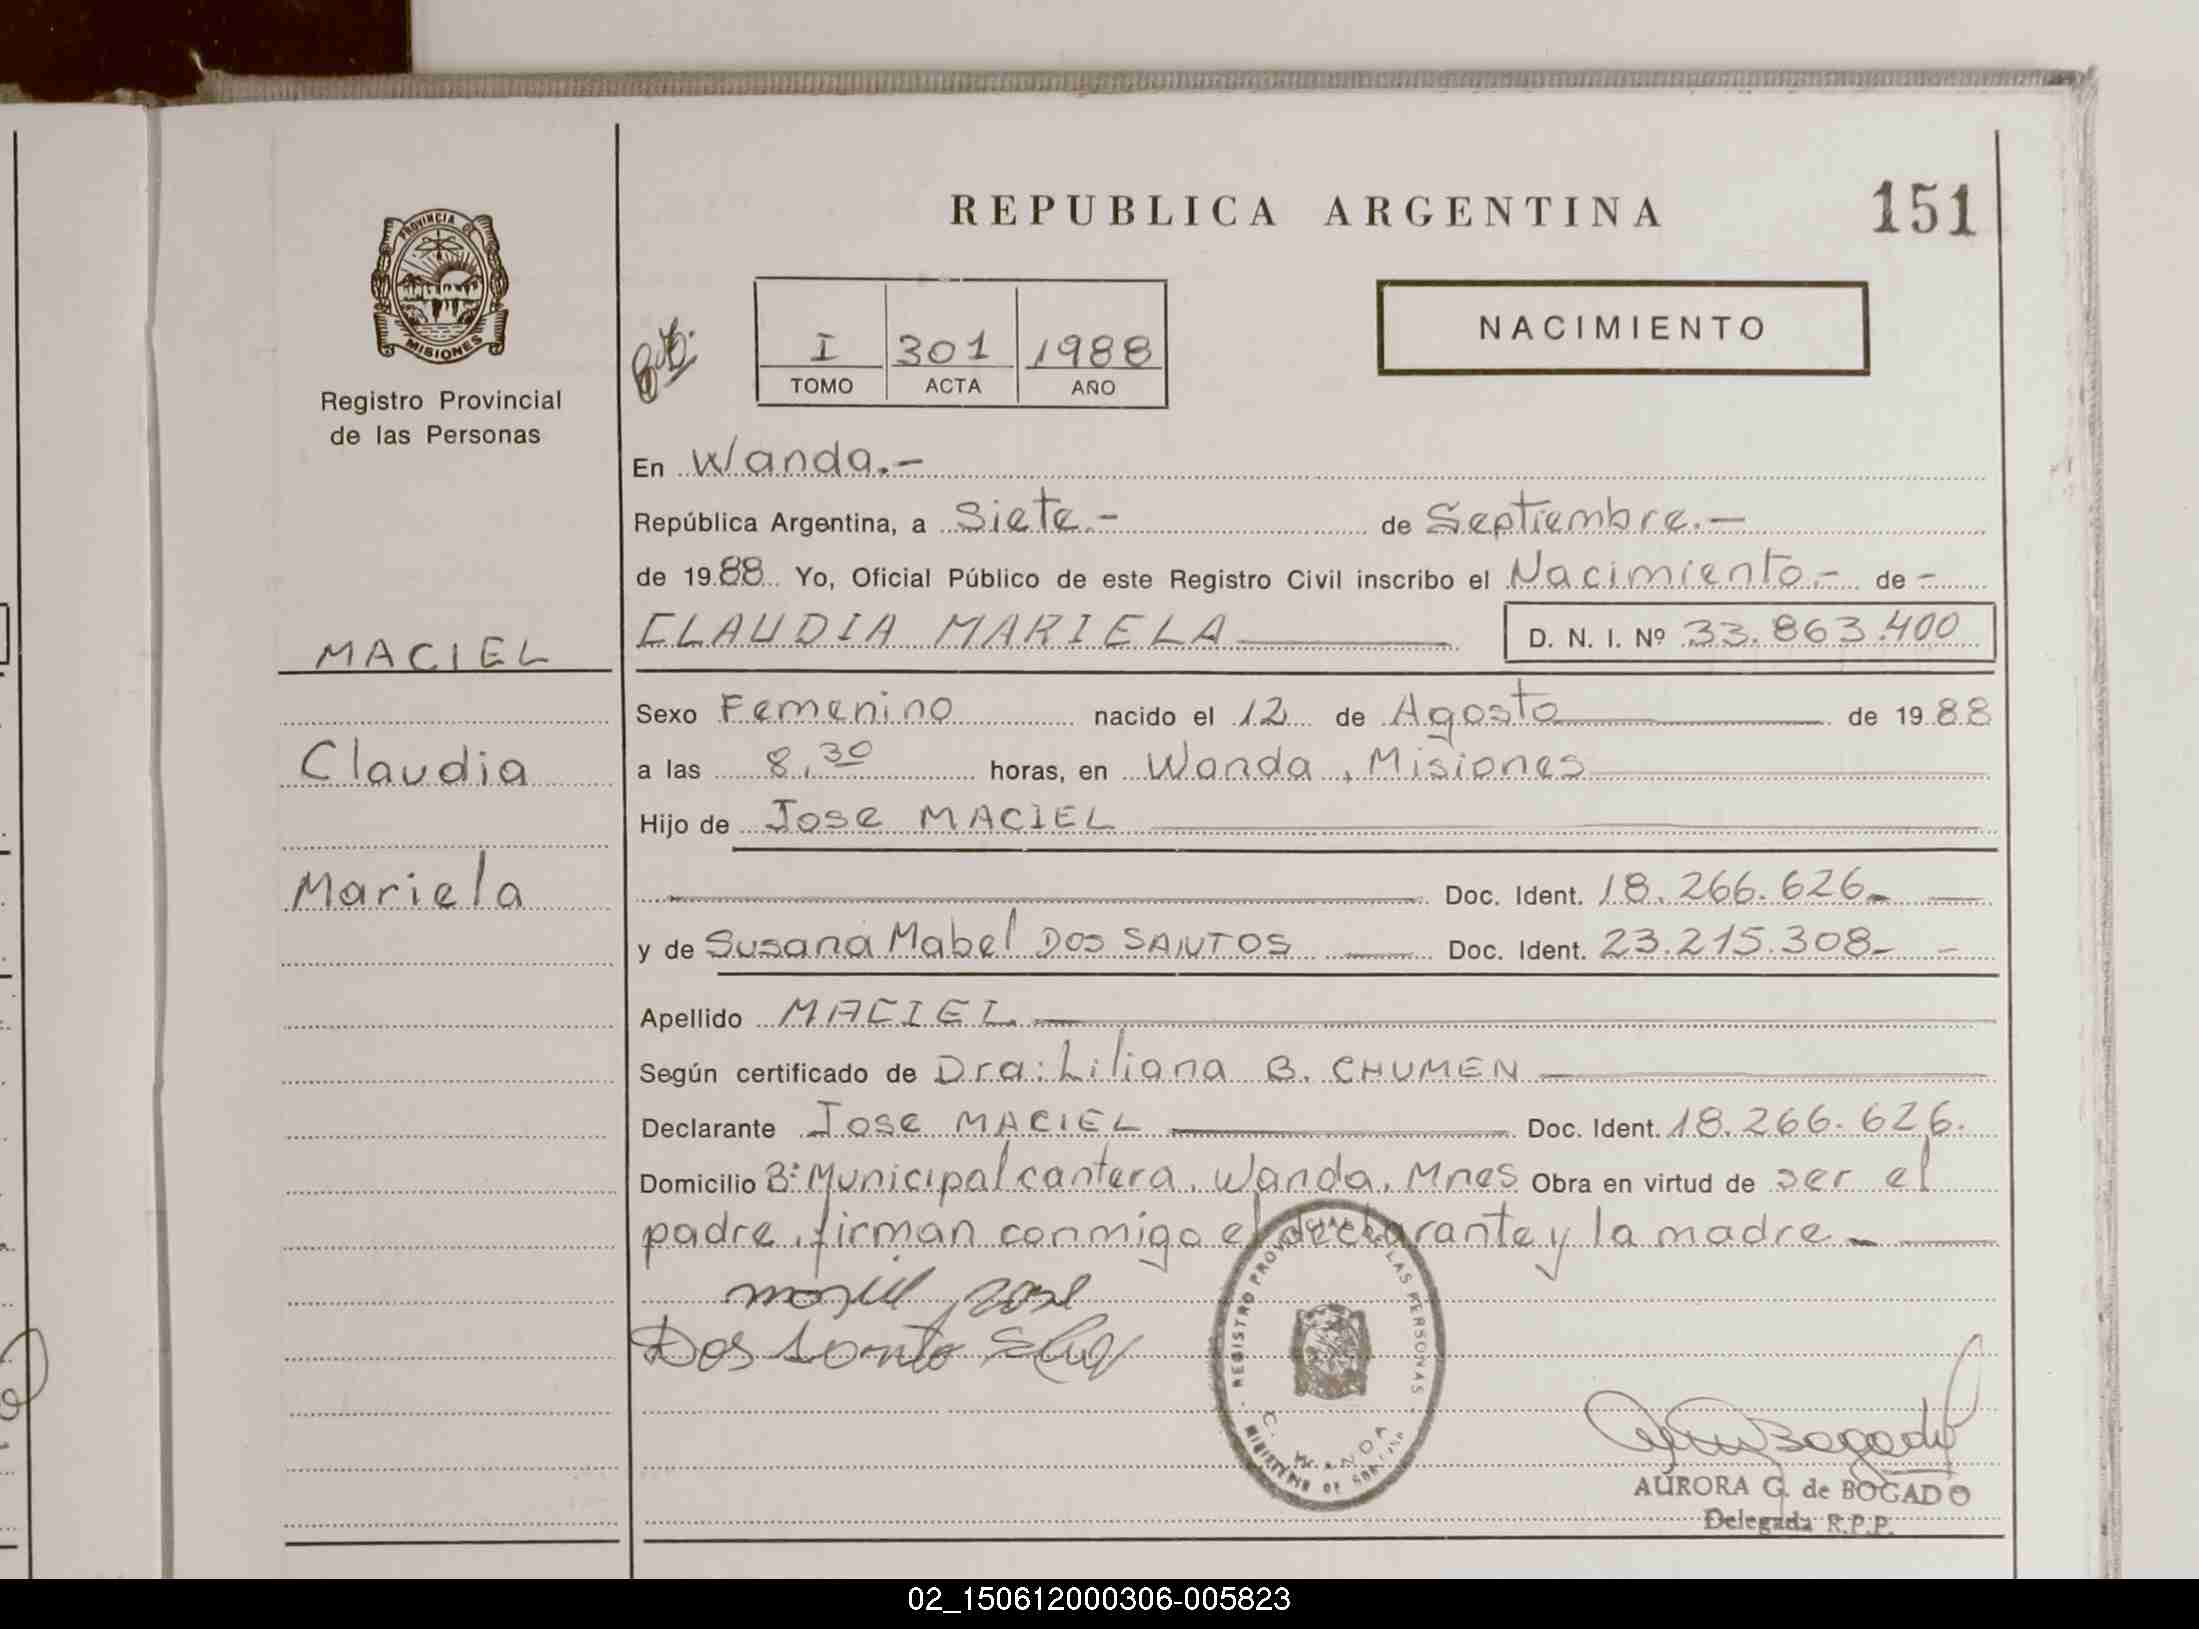 REPUBLICA ARGENTINA
151
NACIMIENTO
I 301 1988
TOMO ACTA AÑO
PROVINCIA DE
MISIONES
Registro Provincial
de las Personas
MACIEL
Claudia
Mariela
En Wanda.-
República Argentina, a Siete.- de Septiembre.-
de 1988 Yo, Oficial Público de este Registro Civil inscribo el Nacimiento.- de -
CLAUDIA MARIELA D. N. I. Nº 33.863.400
Sexo Femenino nacido el 12 de Agosto de 1988
a las 8,30 horas, en Wanda, Misiones
Hijo de Jose MACIEL
Doc. Ident. 18.266.626-
y de Susana Mabel DOS SANTOS Doc. Ident. 23.215.308-
Apellido MACIEL
Según certificado de Dra: Liliana B. CHUMEN
Declarante Jose MACIEL Doc. Ident. 18.266.626.
Domicilio Bº Municipal cantera, Wanda, Mnes Obra en virtud de ser el
padre, firman conmigo el declarante y la madre -
Dos Santo
REGISTRO PROVINCIAL DE LAS PERSONAS
WANDA
MINISTERIO DE GOBIERNO
AURORA G. de BOGADO
Delegada R.P.P.
02_150612000306-005823